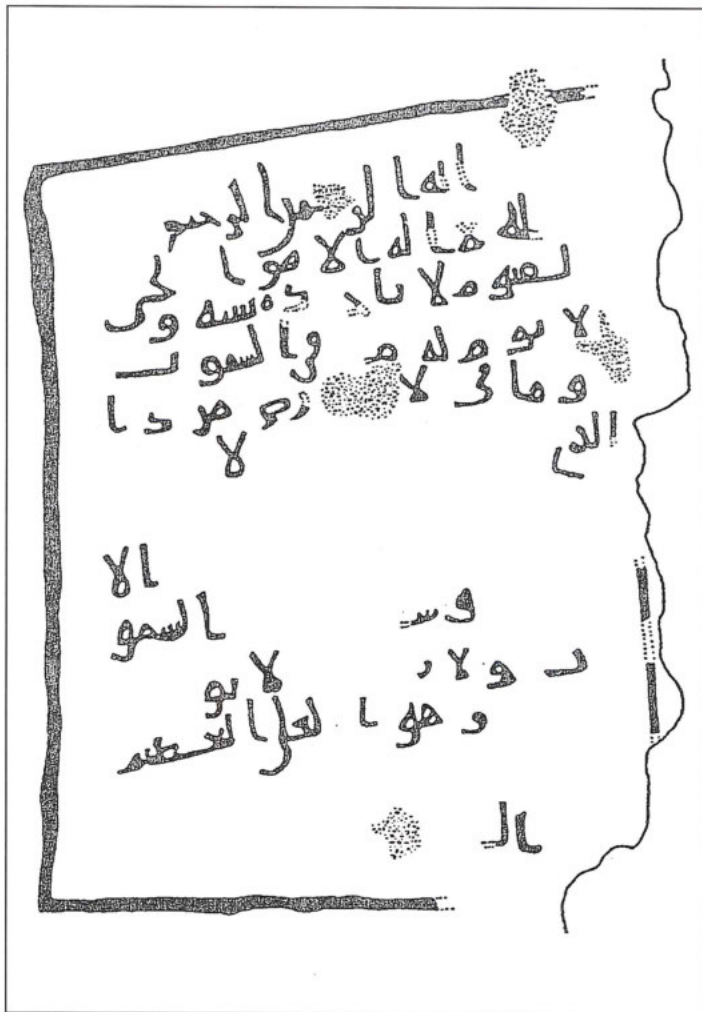 الله الرحمن الرحيم
الله لا اله الا هو الحى
لقيوم لا تاخذه سنه و
لا نوم له م فى السموت
وما فى الارض من ذا
الذى لا
الا
وسـ السمو
ت ولار لا يو
وهو العلى العظيم
الـ